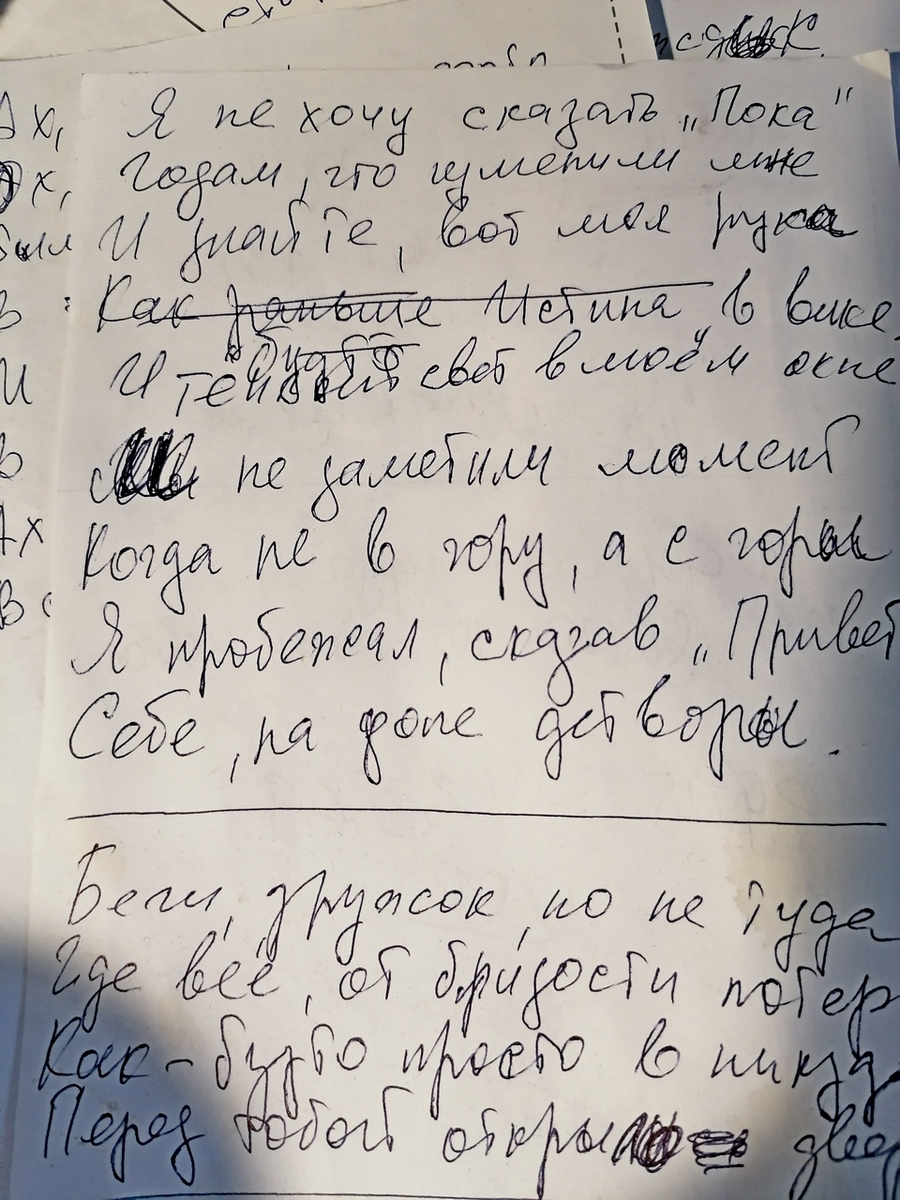 Я не хочу сказать „Пока"
Годам, что изменили мне
И знайте, вот моя рука
Как раньше Истина в вине,
будто
И тени свет в моём окне
не заметили момент
Когда не в гору, а с горы
Я пробежал, сказав „Привет
Себе, на фоне детворы.
Беги, дружок, но не туда
Где всё, от близости потер
Как-будто просто в никуд
Перед тобой откры две
Ах,
Ах,
были
В
И
В
Ах